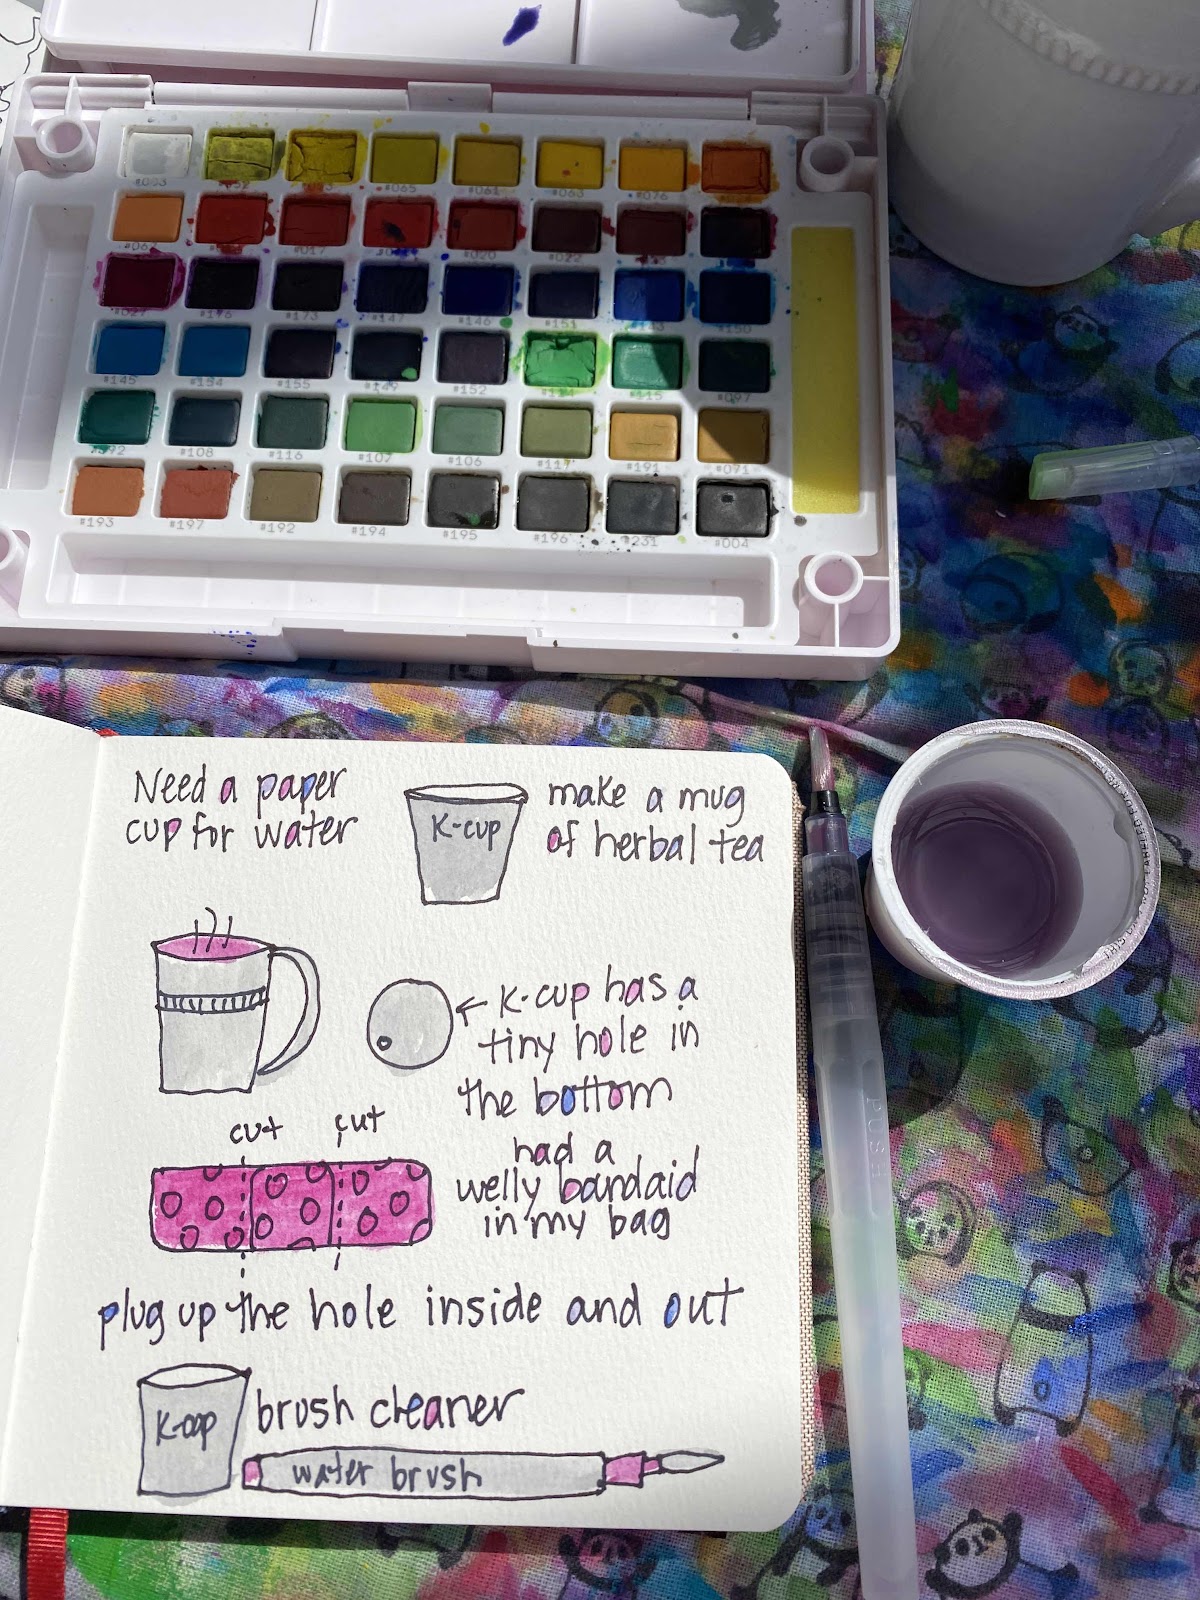 #065
#061
#063
#076
#017
#020
#022
#027
#176
#173
#147
#146
#151
#43
#150
#145
#154
#155
#149
#152
#115
#097
#108
#116
#107
#106
#117
#191
#091
#193
#197
#192
#194
#195
#196
#231
#004
Need a paper
cup for water
K-cup
make a mug
of herbal tea
← K-cup has a
tiny hole in
the bottom
cut
cut
had a
welly bandaid
in my bag
plug up the hole inside and out
K-cup
brush cleaner
water brush
PUSH